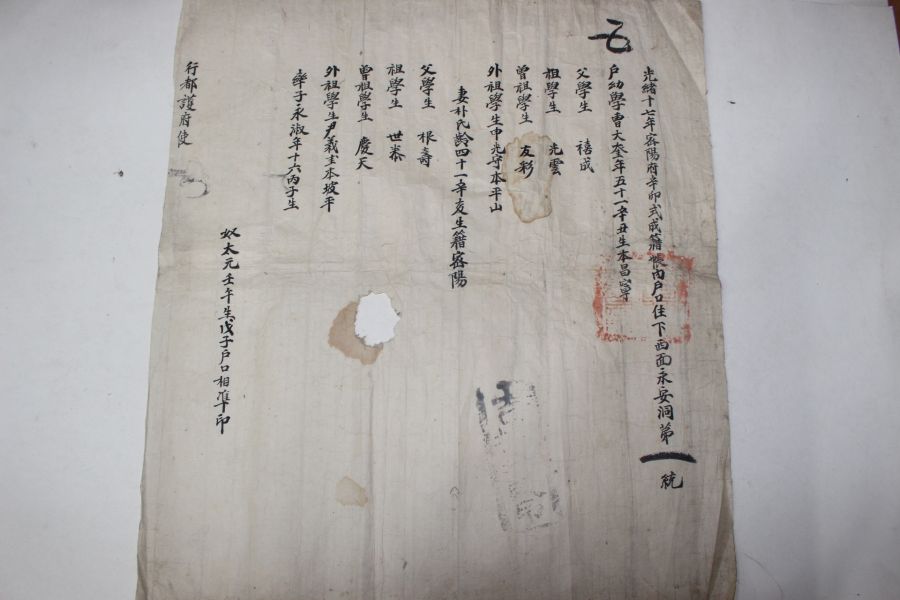 光緖十七年密陽府辛卯式成籍帳內戶口住下西面永安洞第一統
五
戶幼學曺大奎年五十一辛丑生本昌寧
父學生 禧成
祖學生 光雲
曾祖學生 友彩
外祖學生申光守本平山
妻朴氏齡四十一辛亥生籍密陽
父學生 根壽
祖學生 世泰
曾祖學生 慶天
外祖學生尹義圭本坡平
率子永淑年十六丙子生
奴太元壬午生戊子戶口相準印
行都護府使